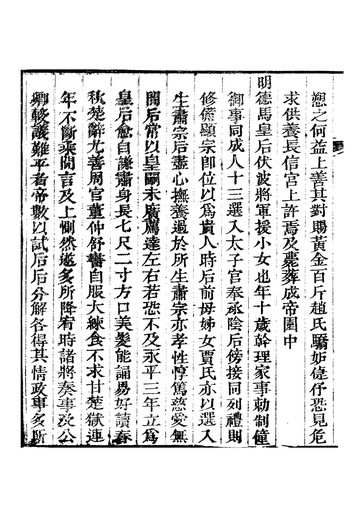 愬之何益上善其對賜黃金百斤趙氏驕妬倢伃恐見危
求供養長信宮上許焉及薨葬成帝園中
明德馬皇后伏波將軍援小女也年十歲幹理家事勅制僮
御事同成人十三選入太子宮奉承陰后傍接同列禮則
修備顯宗卽位以爲貴人時后前母姊女賈氏亦以選入
生肅宗后盡心撫養過於所生肅宗亦孝性惇篤慈愛無
間后常以皇嗣未廣薦達左右若恐不及永平三年立爲
皇后愈自謙肅身長七尺二寸方口美髮能誦易好讀春
秋楚辭尤善周官董仲舒書自服大練食不求甘楚獄連
年不斷乘間言及上惻然遂多所降宥時諸將奏事及公
卿較議難平者帝數以試后后分解各得其情政事多所